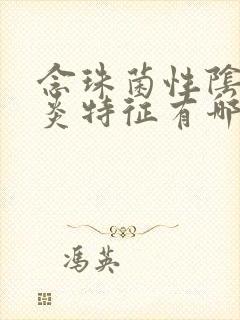 念珠菌性陰
炎特征有哪
馮英